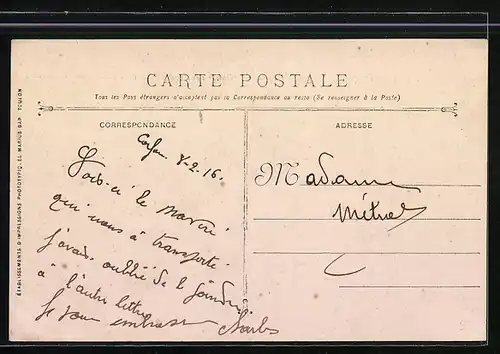 CARTE POSTALE
Tous les Pays étrangers n'acceptent pas la Correspondance au recto (Se renseigner à la Poste)
CORRESPONDANCE
ADRESSE
Corfou 8-2-16.
Voici le
qui nous a transporté
j'avais oublié de le joindre
à l'autre lettre
Je vous embrasse Charles
Madame
Métral
ÉTABLISSEMENTS D'IMPRESSIONS PHOTOTYPIQUES MARIUS BAR TOULON